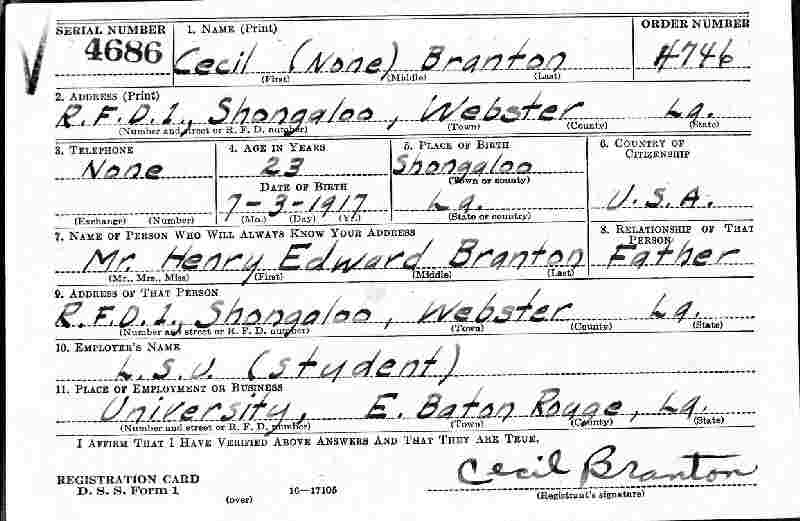 SERIAL NUMBER 1. NAME (Print) ORDER NUMBER
4686 Cecil (None) Branton 4746
(First) (Middle) (Last)
2. ADDRESS (Print)
R.F.D.1., Shongaloo, Webster La.
(Number and street or R. F. D. number) (Town) (County) (State)
3. TELEPHONE 4. AGE IN YEARS 5. PLACE OF BIRTH 6. COUNTRY OF CITIZENSHIP
None 23 Shongaloo
DATE OF BIRTH (Town or county)
7-3-1917 La. U.S.A.
(Exchange) (Number) (Mo.) (Day) (Yr.) (State or country)
7. NAME OF PERSON WHO WILL ALWAYS KNOW YOUR ADDRESS 8. RELATIONSHIP OF THAT PERSON
Mr. Henry Edward Branton Father
(Mr., Mrs., Miss) (First) (Middle) (Last)
9. ADDRESS OF THAT PERSON
R.F.D.1., Shongaloo, Webster La.
(Number and street or R. F. D. number) (Town) (County) (State)
10. EMPLOYER'S NAME
L.S.U. (student)
11. PLACE OF EMPLOYMENT OR BUSINESS
University, E. Baton Rouge, La.
(Number and street or R. F. D. number) (Town) (County) (State)
I AFFIRM THAT I HAVE VERIFIED ABOVE ANSWERS AND THAT THEY ARE TRUE.
Cecil Branton
REGISTRATION CARD
D. S. S. Form 1 (over) 16-17105 (Registrant's signature)